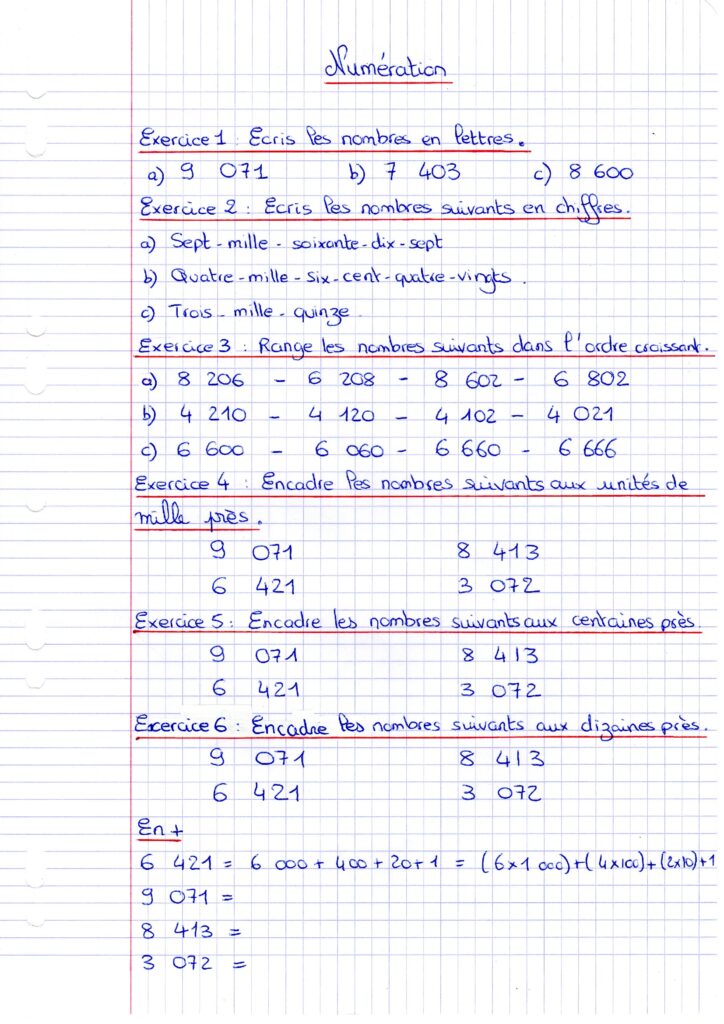 Numération
Exercice 1 : Ecris les nombres en lettres.
a) 9 071 b) 7 403 c) 8 600
Exercice 2 : Ecris les nombres suivants en chiffres.
a) Sept - mille - soixante - dix - sept
b) Quatre - mille - six - cent - quatre - vingts.
c) Trois - mille - quinze.
Exercice 3 : Range les nombres suivants dans l'ordre croissant.
a) 8 206 - 6 208 - 8 602 - 6 802
b) 4 210 - 4 120 - 4 102 - 4 021
c) 6 600 - 6 060 - 6 660 - 6 666
Exercice 4 : Encadre les nombres suivants aux unités de
mille près.
9 071 8 413
6 421 3 072
Exercice 5 : Encadre les nombres suivants aux centaines près.
9 071 8 413
6 421 3 072
Excercice 6 : Encadre les nombres suivants aux dizaines près.
9 071 8 413
6 421 3 072
En +
6 421 = 6 000 + 400 + 20 + 1 = (6x1 000)+(4x100)+(2x10)+1
9 071 =
8 413 =
3 072 =